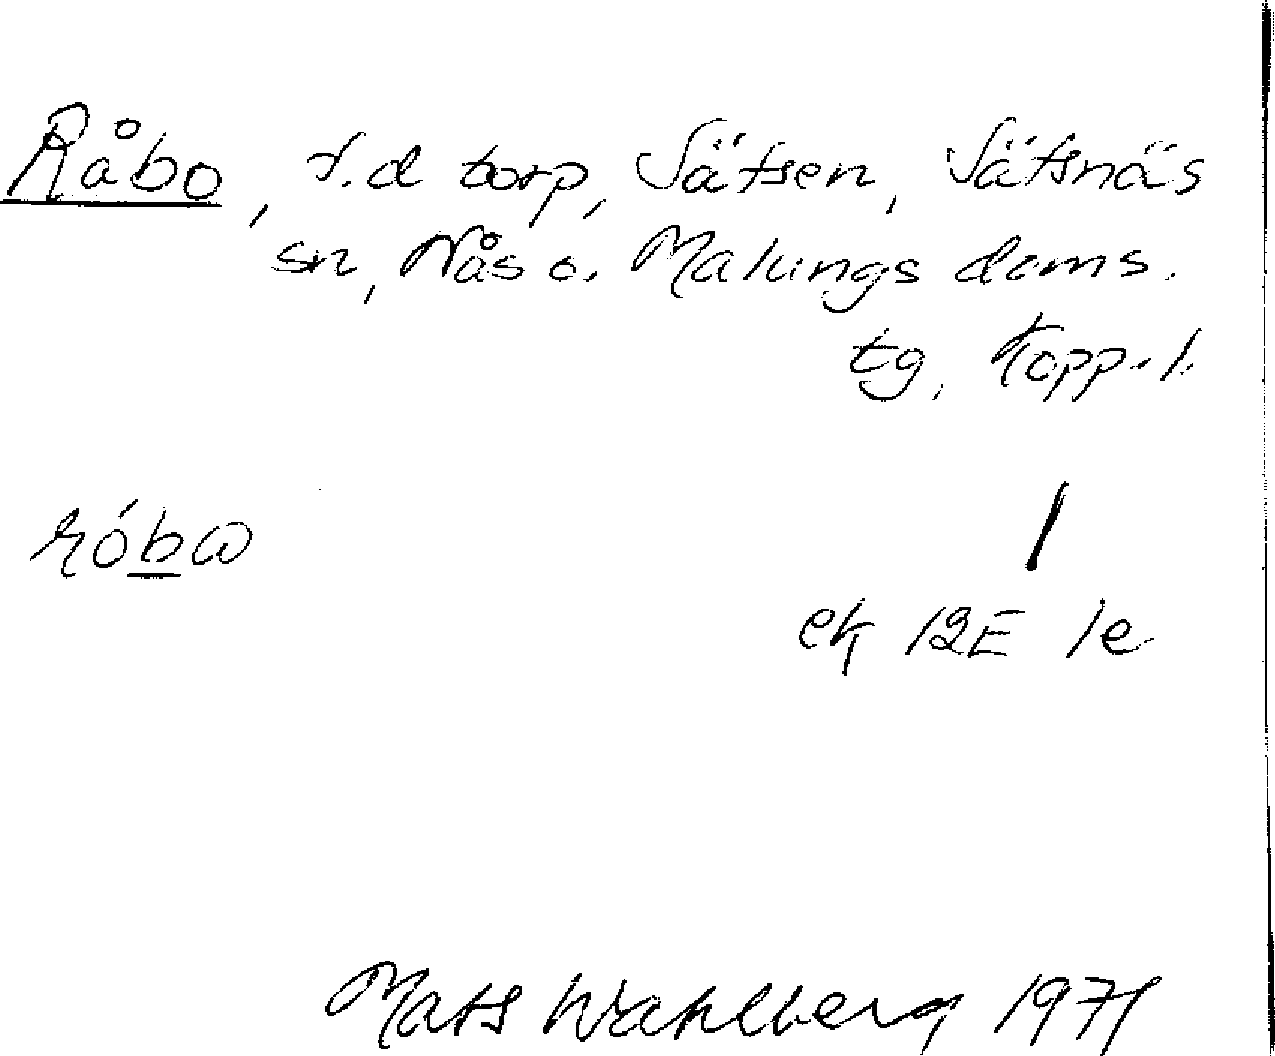 Råbo, f.d torp, Sätsen, Sätsnäs
sn, Nås o. Malungs doms.
tg, Kopp. l.
róbω
ek 12E 1e
Mats Wahlberg 1971